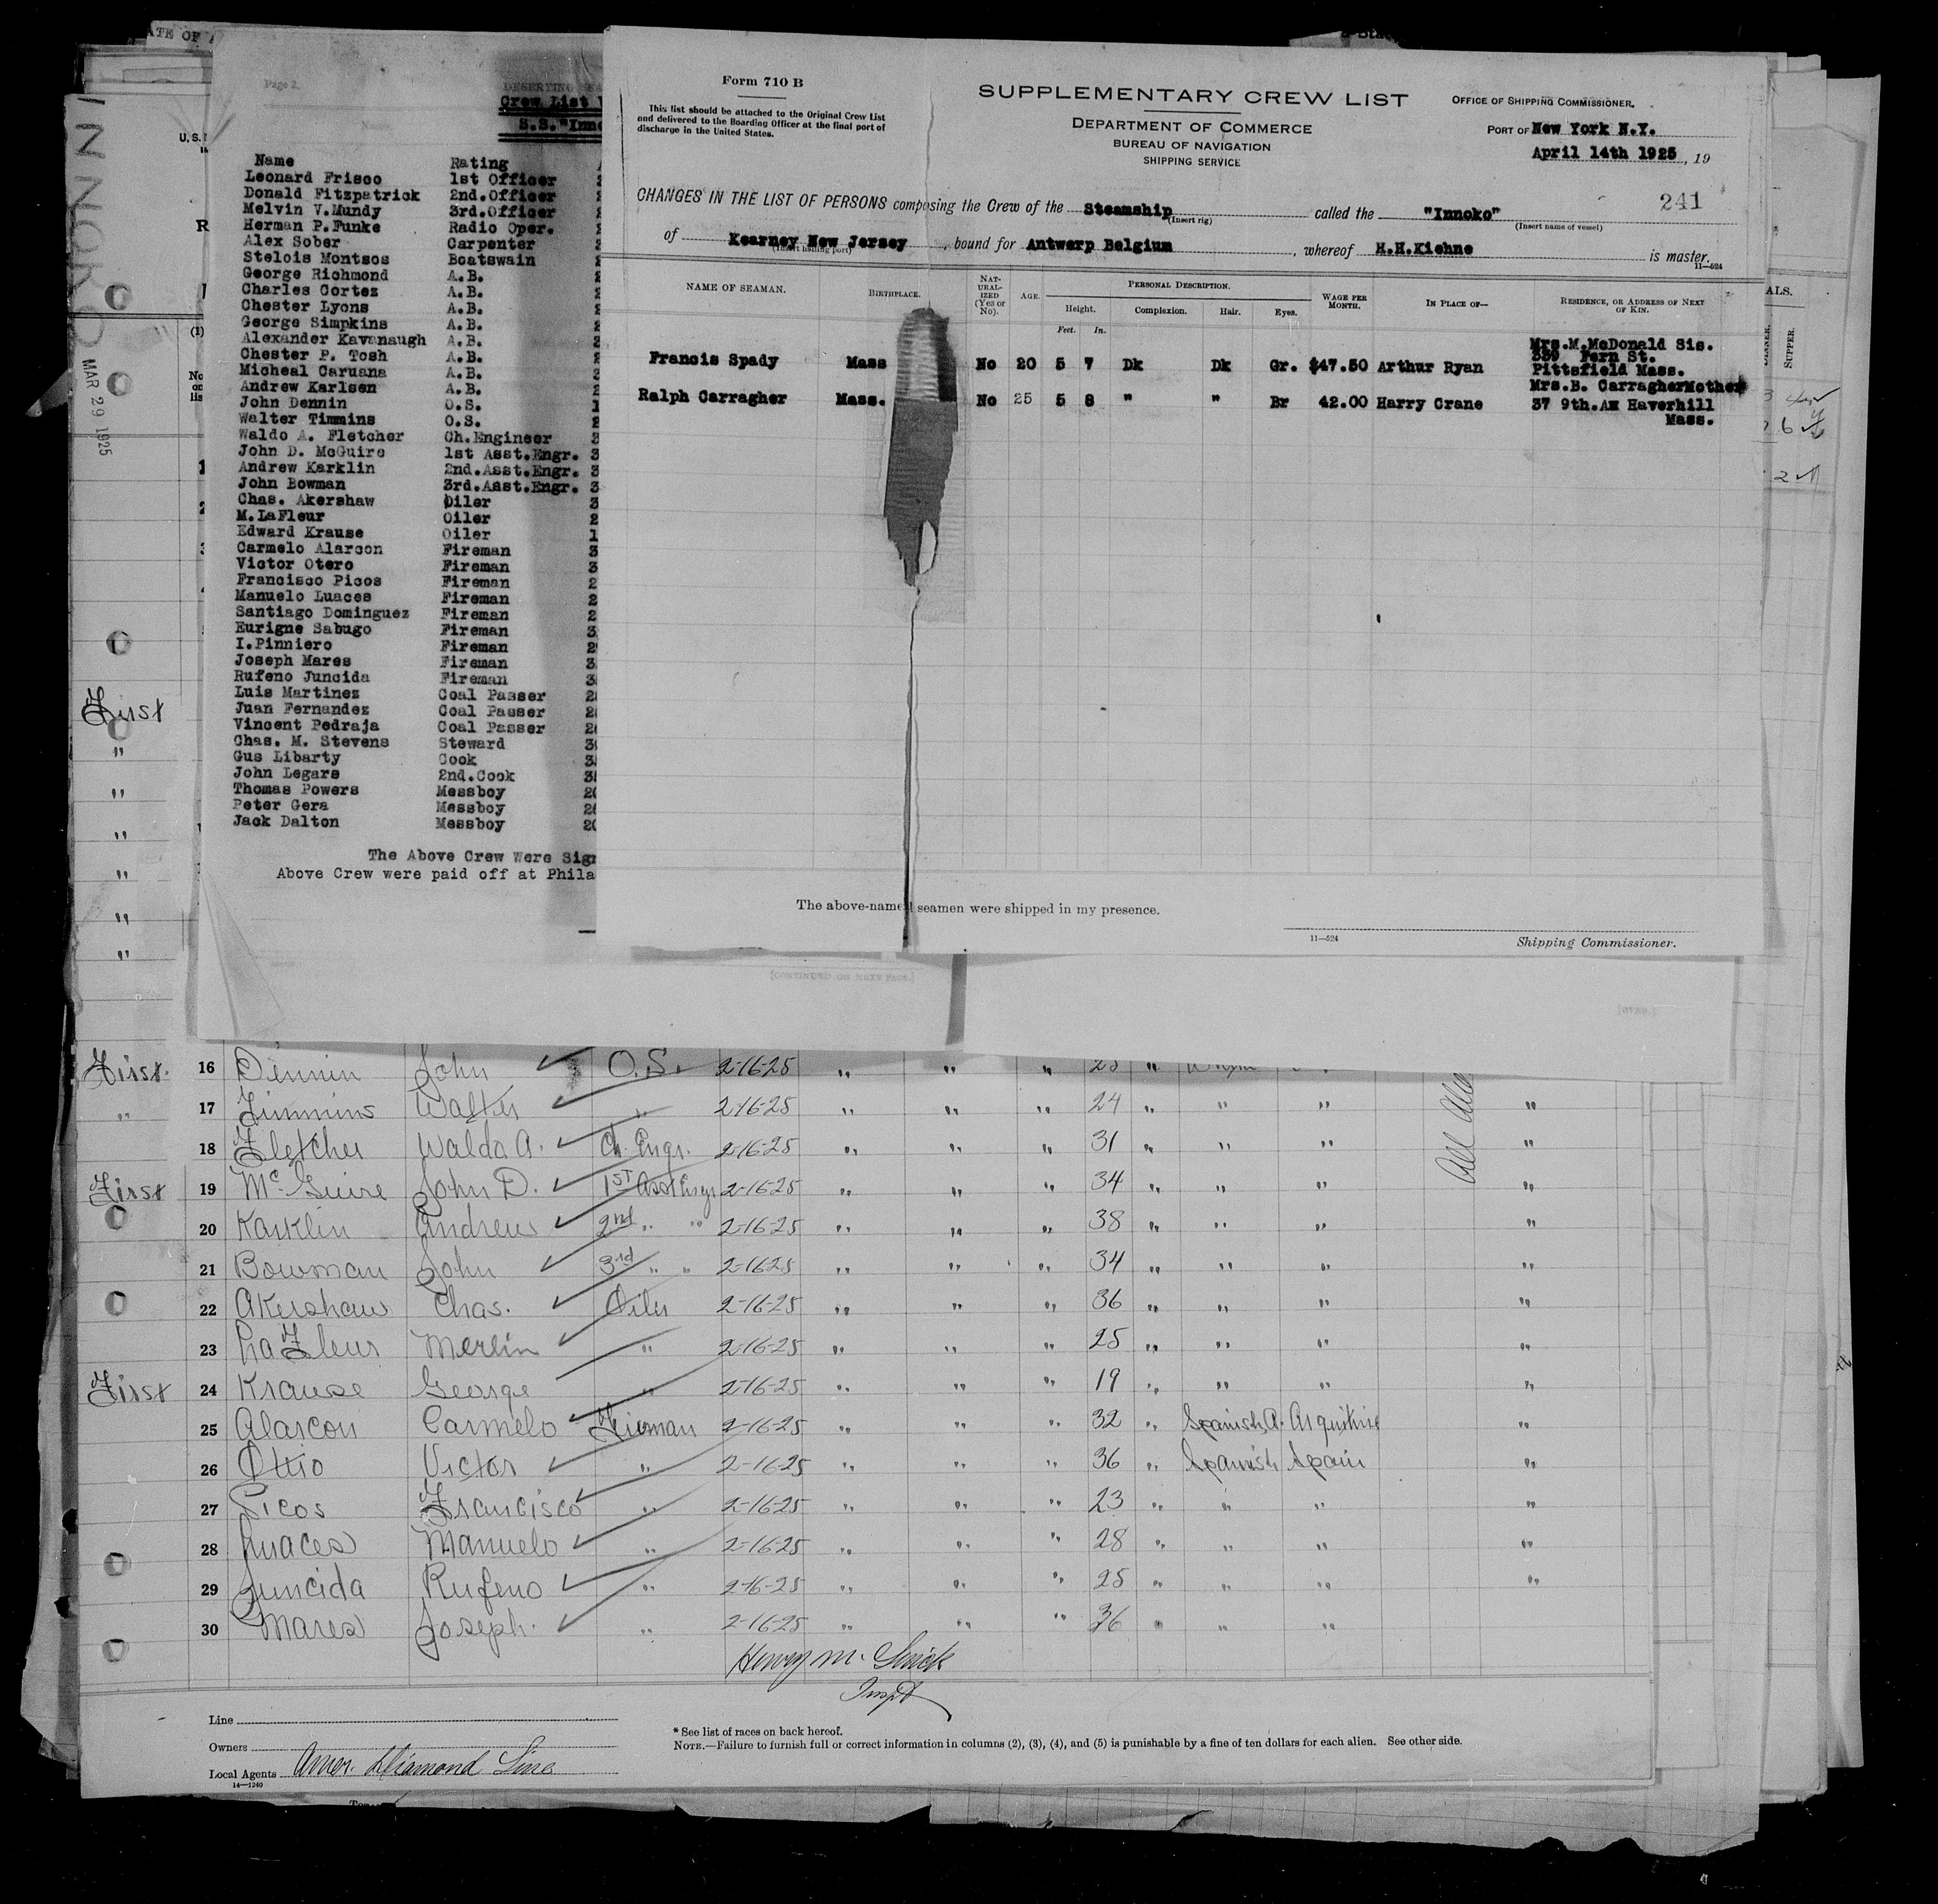 INNOKO
MAR 29 1925
ATE OF
U.S.
Page 2
DESERTING SEA
Crew List
S.S. "Inno
Name Rating
Leonard Frisco 1st Officer
Donald Fitzpatrick 2nd.Officer
Melvin V.Mundy 3rd.Officer
Herman P.Funke Radio Oper.
Alex Sober Carpenter
Stelois Montsos Boatswain
George Richmond A.B.
Charles Cortez A.B.
Chester Lyons A.B.
George Simpkins A.B.
Alexander Kavanaugh A.B.
Chester P. Tosh A.B.
Micheal Caruana A.B.
Andrew Karlsen A.B.
John Dennin O.S. 1
Walter Timmins O.S. 2
Waldo A. Fletcher Ch.Engineer 3
John D. McGuire 1st Asst.Engr. 3
Andrew Karklin 2nd.Asst.Engr. 3
John Bowman 3rd.Asst.Engr. 3
Chas. Akershaw Oiler 3
M.LaFleur Oiler 2
Edward Krause Oiler 1
Carmelo Alarcon Fireman 3
Victor Otero Fireman 3
Francisco Picos Fireman 2
Manuelo Luaces Fireman 2
Santiago Dominguez Fireman 2
Eurigne Sabugo Fireman 3
I.Pinniero Fireman 2
Joseph Mares Fireman 3
Rufeno Juncida Fireman 3
Luis Martinez Coal Passer 2
Juan Fernandez Coal Passer 2
Vincent Pedraja Coal Passer 2
Chas. M. Stevens Steward 3
Gus Libarty Cook 3
John Legare 2nd.Cook 3
Thomas Powers Messboy 20
Peter Gera Messboy 2
Jack Dalton Messboy 20
The Above Crew Were Sign
Above Crew were paid off at Phila
Form 710 B
This list should be attached to the Original Crew List
and delivered to the Boarding Officer at the final port of
discharge in the United States.
SUPPLEMENTARY CREW LIST
DEPARTMENT OF COMMERCE
BUREAU OF NAVIGATION
SHIPPING SERVICE
OFFICE OF SHIPPING COMMISSIONER.
PORT OF New York N.Y.
April 14th 1925, 19
241
CHANGES IN THE LIST OF PERSONS composing the Crew of the Steamship called the "Innoko"
(Insert rig) (Insert name of vessel)
of Kearney New Jersey, bound for Antwerp Belgium, whereof H.H.Kiehne is master.
(Insert hailing port) 11—524
NAME OF SEAMAN. BIRTHPLACE. NAT-URAL-IZED (Yes or No). AGE. PERSONAL DESCRIPTION. WAGE PER MONTH. IN PLACE OF— RESIDENCE, OR ADDRESS OF NEXT OF KIN.
Height. Complexion. Hair. Eyes.
Feet. In.
Mrs.M.McDonald Sis.
339 Fern St.
Francis Spady Mass No 20 5 7 Dk Dk Gr. $47.50 Arthur Ryan Pittsfield Mass.
Mrs.B. CarragherMother
Ralph Carragher Mass. No 25 5 8 " " Br 42.00 Harry Crane 37 9th.Ax Haverhill
Mass.
The above-named seamen were shipped in my presence.
11—524 Shipping Commissioner.
ALS.
DINNER.
SUPPER.
[CONTINUED ON NEXT PAGE.]
[OVER.]
First
"
"
"
"
"
"
First. 16 Dennin John O.S. 2-16-25 " " "
" 17 Timmins Walter " 2-16-25 " " " 24 " " " "
18 Fletcher Waldo A. Ch. Engr. 2-16-25 " " " 31 " " " "
First 19 McGuire John D. 1st Asst Engr 2-16-25 " " " 34 " " " "
20 Karklin Andrew 2nd " " 2-16-25 " " " 38 " " " "
21 Bowman John 3rd " " 2-16-25 " " " 34 " " " "
22 Akershaw Chas. Oiler 2-16-25 " " " 36 " " " "
23 LaFleur Merlin " 2-16-25 " " " 25 " " " "
First 24 Krause George " 2-16-25 " " " 19 " " " "
25 Alarcon Carmelo Fireman 2-16-25 " " " 32 " Spanish A. "
26 Otero Victor " 2-16-25 " " " 36 " Spanish Spain "
27 Picos Francisco " 2-16-25 " " " 23 " " " "
28 Luaces Manuelo " 2-16-25 " " " 28 " " " "
29 Juncida Rufeno " 2-16-25 " " " 25 " " " "
30 Mares Joseph. " 2-16-25 " " " 36 " " "
Inspt
Line
Owners
Local Agents Amer. Diamond Line
14—1240
* See list of races on back hereof.
NOTE.—Failure to furnish full or correct information in columns (2), (3), (4), and (5) is punishable by a fine of ten dollars for each alien. See other side.